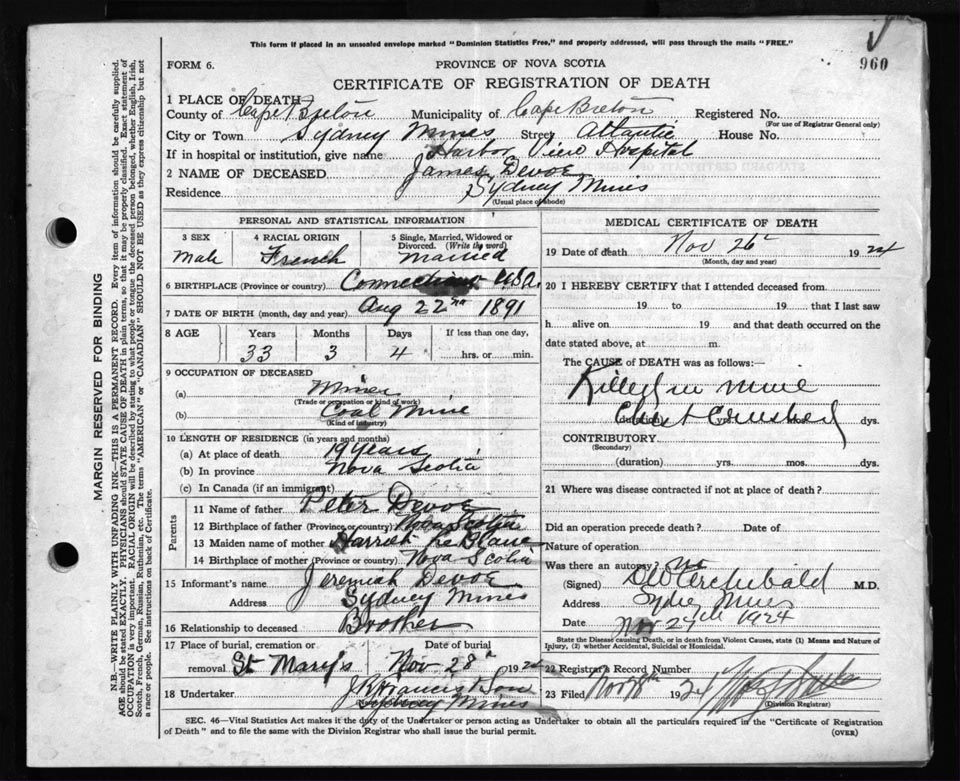 This form if placed in an unsealed envelope marked "Dominion Statistics Free," and properly addressed, will pass through the mails "FREE."
960
FORM 6.
PROVINCE OF NOVA SCOTIA
CERTIFICATE OF REGISTRATION OF DEATH
1 PLACE OF DEATH—
County of Cape Breton Municipality of Cape Breton Registered No.
(For use of Registrar General only)
City or Town Sydney Mines Street Atlantic House No.
If in hospital or institution, give name Harbor View Hospital
2 NAME OF DECEASED James Devoe
Residence Sydney Mines
(Usual place of abode)
PERSONAL AND STATISTICAL INFORMATION
3 SEX 4 RACIAL ORIGIN 5 Single, Married, Widowed or Divorced. (Write the word)
Male French Married
6 BIRTHPLACE (Province or country) USA.
7 DATE OF BIRTH (month, day and year) Aug 22nd 1891
8 AGE Years Months Days If less than one day,
33 3 4 hrs. or min.
9 OCCUPATION OF DECEASED
(a) Miner
(Trade or occupation or kind of work)
(b) Coal Mine
(Kind of industry)
10 LENGTH OF RESIDENCE (in years and months)
(a) At place of death 19 years
(b) In province Nova Scotia
(c) In Canada (if an immigrant)
Parents
11 Name of father Peter Devoe
12 Birthplace of father (Province or country) Nova Scotia
13 Maiden name of mother Harriet Le Blanc
14 Birthplace of mother (Province or country) Nova Scotia
15 Informant's name Jeremiah Devoe
Address Sydney Mines
16 Relationship to deceased Brother
17 Place of burial, cremation or Date of burial
removal St Mary's Nov 28th 1924
18 Undertaker J R Francis & Son
Sydney Mines
MEDICAL CERTIFICATE OF DEATH
19 Date of death Nov 26th 1924
(Month, day and year)
20 I HEREBY CERTIFY that I attended deceased from
19 to 19 that I last saw
h alive on 19 and that death occurred on
date stated above, at m.
The CAUSE of DEATH was as follows:—
Killed in mine
Chest Crushed
(duration) yrs. mos. dys.
CONTRIBUTORY
(Secondary)
(duration) yrs. mos. dys.
21 Where was disease contracted if not at place of death?
Did an operation precede death? Date of
Nature of operation
Was there an autopsy? No
(Signed) Archibald M.D.
Address Sydney Mines
Date Nov 27th 1924
State the Disease causing Death, or in death from Violent Causes, state (1) Means and Nature of
Injury, (2) whether Accidental, Suicidal or Homicidal.
22 Registrar's Record Number
23 Filed Nov 1924
(Division Registrar)
SEC. 46—Vital Statistics Act makes it the duty of the Undertaker or person acting as Undertaker to obtain all the particulars required in the "Certificate of Registration
of Death" and to file the same with the Division Registrar who shall issue the burial permit.
(OVER)
MARGIN RESERVED FOR BINDING
N.B.—WRITE PLAINLY WITH UNFADING INK—THIS IS A PERMANENT RECORD. Every item of information should be carefully supplied.
AGE should be stated EXACTLY. PHYSICIANS should STATE CAUSE OF DEATH in plain terms, so that it may be properly classified. Exact statement of
OCCUPATION is very important. RACIAL ORIGIN will be described by stating to what people or tongue the deceased person belonged, whether English, Irish,
Scotch, French, German, Russian, Ruthenian, etc. The terms "AMERICAN" or "CANADIAN" SHOULD NOT BE USED as they express citizenship but not
a race or people. See instructions on back of Certificate.